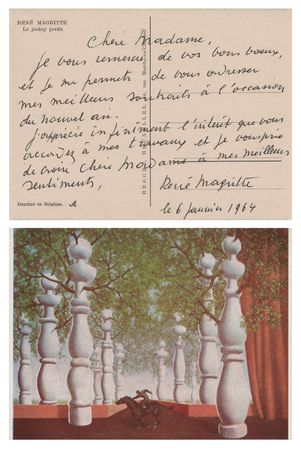 RENÉ MAGRITTE
Le jockey perdu
Chère Madame,
je vous remercie de vos bons voeux,
et je me permets de vous adresser
mes meilleurs souhaits à l'occasion
du nouvel an.
J'apprécie infiniment l'intérêt que vous
accordez à mes travaux et je vous prie
de croire Chère Madame à mes meilleurs
sentiments,
René Magritte
le 6 janvier 1964
Imprimé en Belgique.